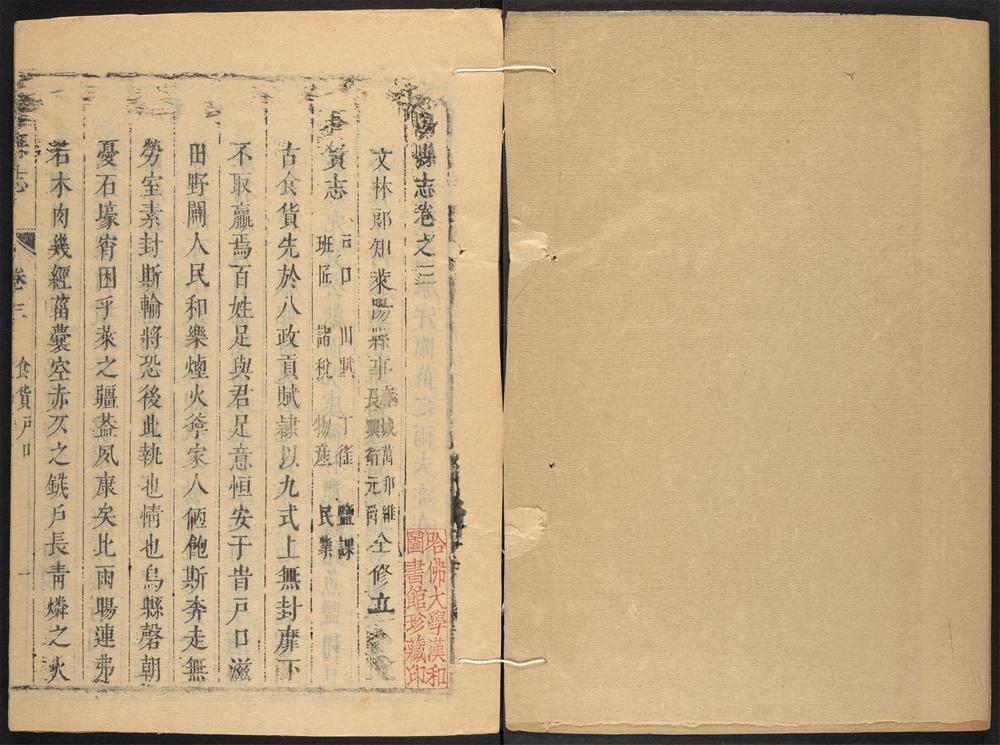 陽縣志卷之三
文林郎知萊陽縣事 萬邦維 長興衛元爵 仝修立
食貨志 戶口 田賦 丁徭 鹽課 班匠 諸稅 物產 民業
古食貨先於八政貢賦隸以九式上無封靡下
不取贏焉百姓足與君足意恒安于昔戶口滋
田野闢人民和樂煙火夥家人伍飽斯奔走無
勞室素封斯輸將恐後此執也情也烏縣磬朝
憂石壕宵困乎萊之疆葢夙康矣比雨暘連弗
若木肉幾經菑囊空赤仄之銕戶長青燐之火
縣志
卷三
食貨戶口
一
哈佛大學漢和
圖書館珍藏印